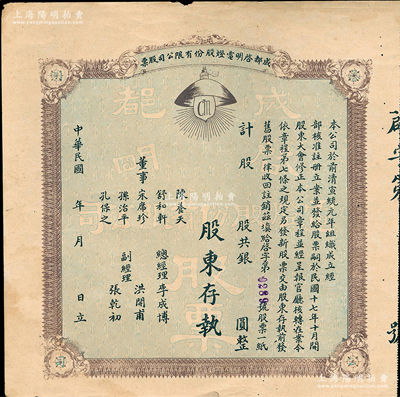 上海陽明拍賣
成都啓明電燈股份有限公司股票
本公司於前清宣統元年組織成立經
部核准註册立案並發給股票嗣於民國十七年十月開
股東大會修正本公司章程並經呈報官廳核轉准案今
依章程第七條之規定另發新股票交由股東存執前發
舊股票一律收回註銷茲塡給啓字第 號股票一紙
計股 股共銀 圓整
股東存執
董事
陳養天
舒和軒
宋席珍
孫治平
孔保之
總經理 李成博
洪開甫
副經理 張乾初
中華民國 年 月 日立
成都
公司
股票
號